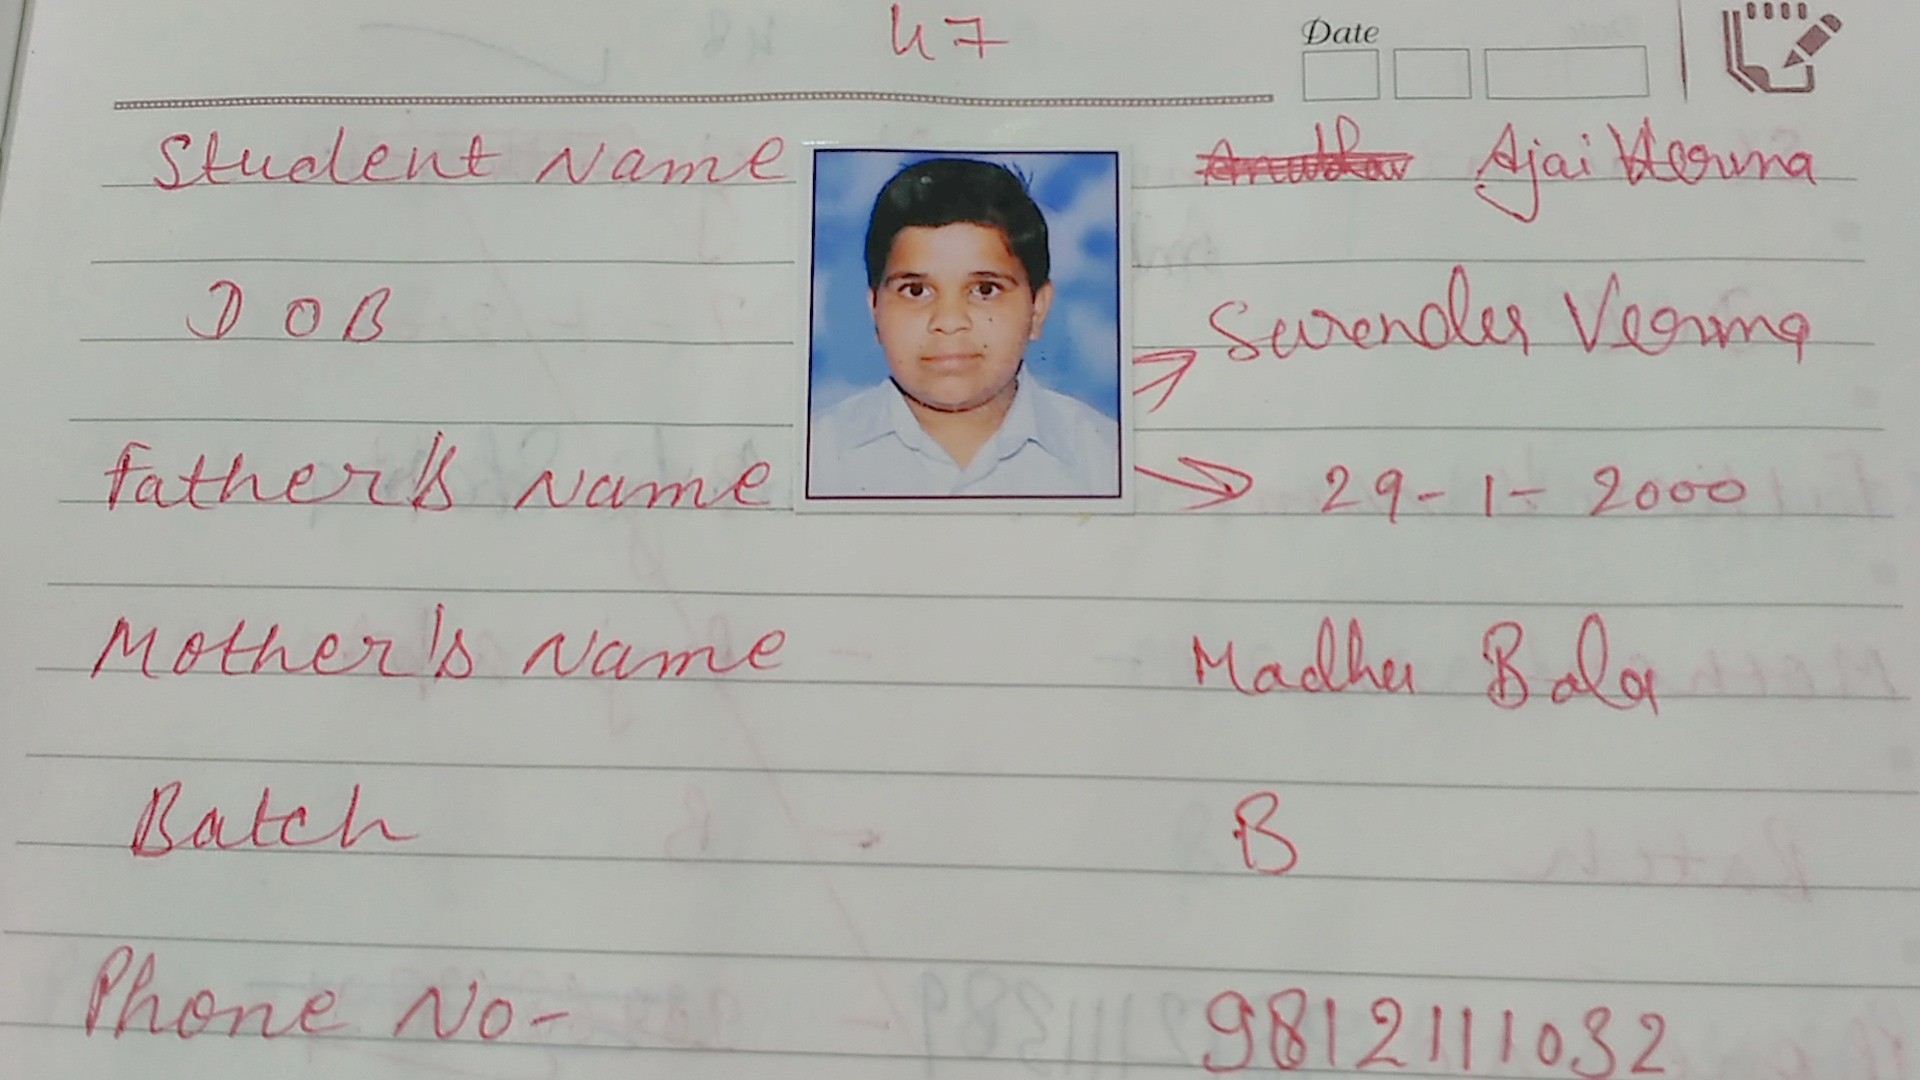 47
Date
Student Name Ajai Verma
DOB Surender Verma
Father's Name 29-1-2000
Mother's Name - Madhu Bala
Batch B
Phone No- 9812111032